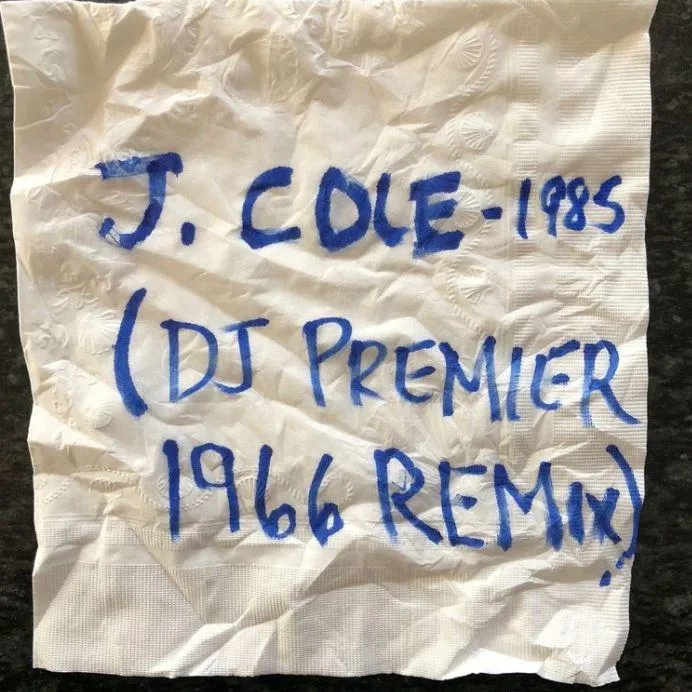 J. COLE-1985
(DJ PREMIER
1966 REMIX)